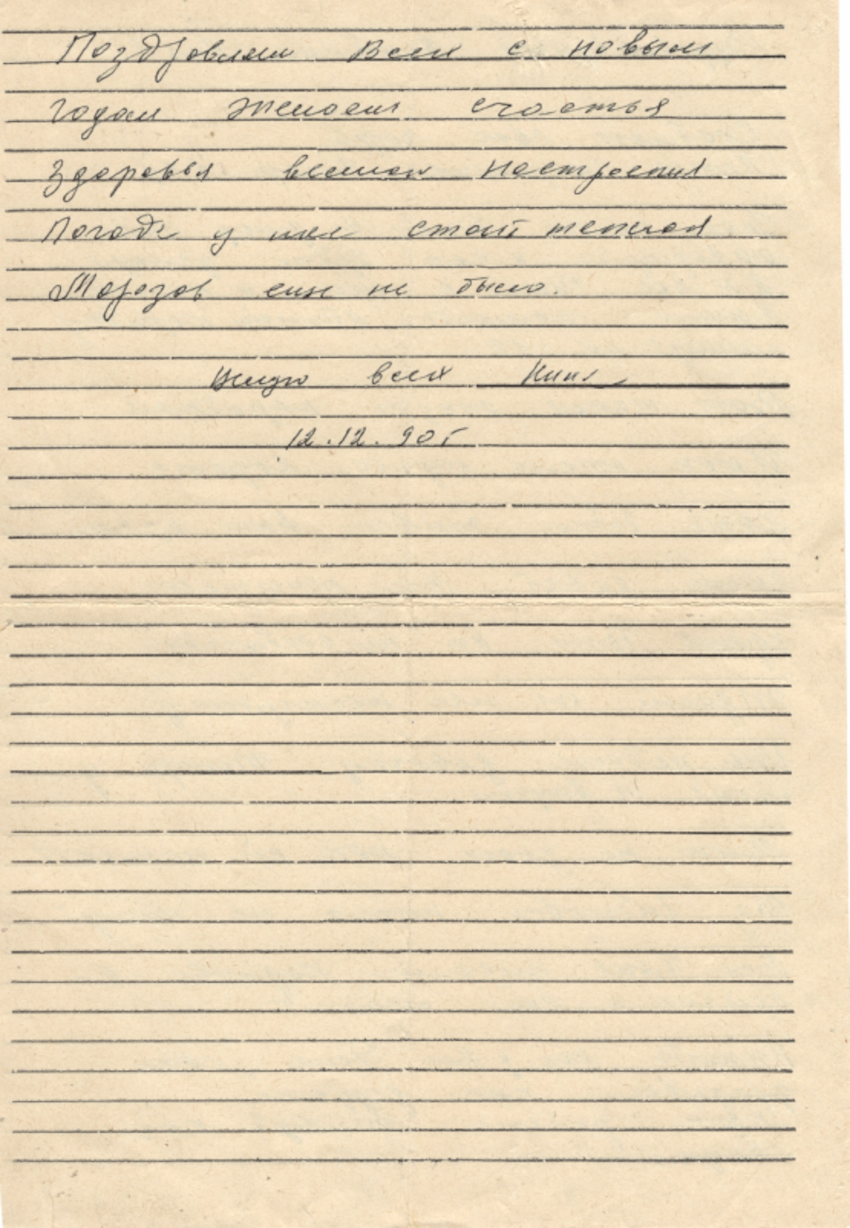 Поздравляем Всех с новым
годом Желаем счастья
Здоровья весело настроения
Погода у нас стоит теплая
Морозов еще не было.
Целую всех
12.12.90г